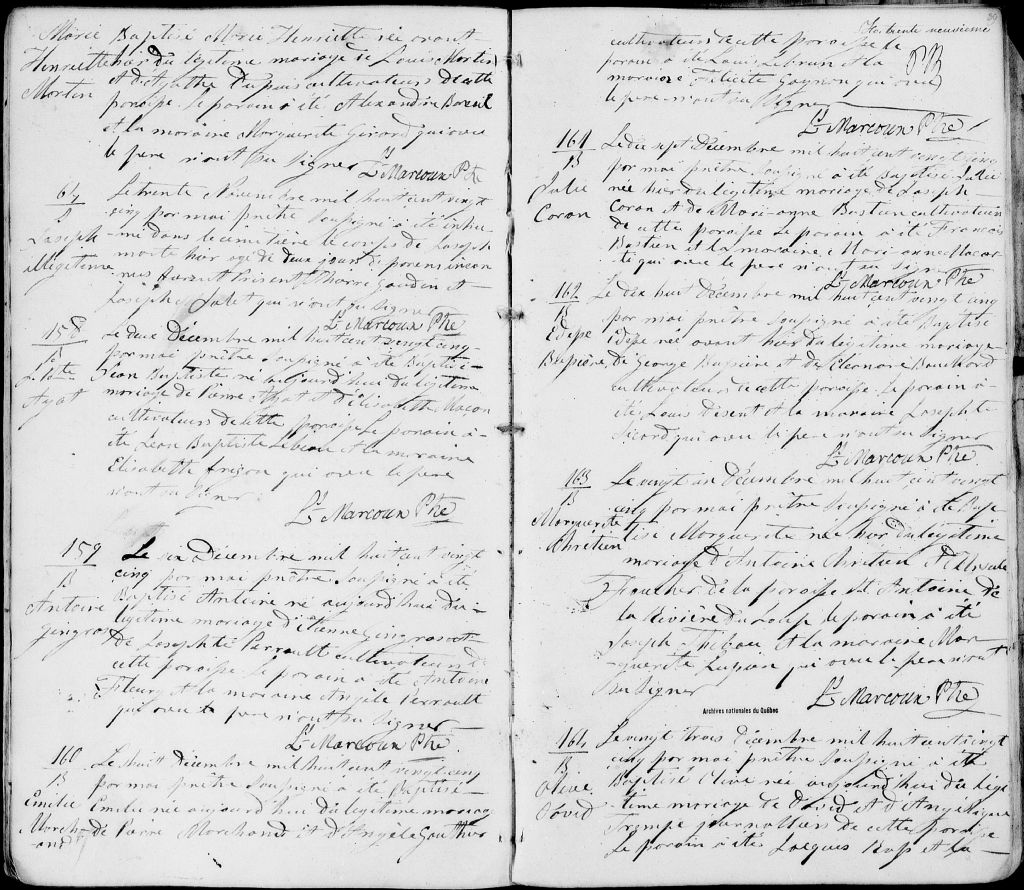 Marie Baptisé Marie Henriette née avant
Henriette hier du légitime mariage de Louis Martin
Martin et d'Agathe Dupuis cultivateurs de cette
paroisse. Le parain a été Alexandre
et la maraine Marguerite Girard qui avec
le pere n'ont su signer
Ls Marcoux Ptre
Le trente Novembre mil huit cent vingt
cinq par moi prêtre soussigné a été inhu-
Joseph mé dans le cimetière le corps de Joseph
illégitime morte hier agé de deux jours de parens incon
nus durant Présent Pierre Gaudin et
Joseph qui n'ont su signer
Ls Marcoux Ptre
158 Le deux Décembre mil huit cent vingt cinq
B par moi prêtre soussigné a été Baptisé
J. Bte Jean Baptiste né aujourd'hui du légitime
Ayot mariage de Pierre Ayot et d'Elisabette Macon
cultivateurs de cette paroisse Le parain a
été Jean Baptiste Lebeau et la maraine
Elisabette qui avec le pere
n'ont su signer
Ls Marcoux Ptre
159 Le six Décembre mil huit cent vingt
B cinq par moi prêtre soussigné a été
Antoine Baptisé Antoine né aujourd'hui du
Gingras légitime mariage d'Etienne Gingras et
de Josephte Perrault cultivateurs de
cette paroisse Le parain a été Antoine
Fleury et la maraine Angèle Perrault
qui avec le pere n'ont su signer
Ls Marcoux Ptre
160 Le huit Décembre mil huit cent vingt cinq
B par moi prêtre soussigné a été Baptisé
Emilie Emilie née aujourd'hui du légitime mariage
March de Pierre Marchand et d'Angèle Gauthier
and
30
trente neuvieme
PB
cultivateurs de cette paroisse le
parain a été Louis Lebrun et la
maraine Félicité Gagnon qui avec
le pere n'ont su signer
Ls Marcoux Ptre
161 Le dix sept Décembre mil huit cent vingt cinq
B par moi prêtre soussigné a été Baptisé Julie
Julie née hier du légitime mariage de Joseph
Caron Caron et de Mari-anne Bastien cultivateurs
de cette paroisse Le parain a été François
Bastien et la maraine Mari-anne
qui avec le pere n'ont su signer
Ls Marcoux Ptre
162 Le dix huit Décembre mil huit cent vingt cinq
B par moi prêtre soussigné a été Baptisé
Edepe Edepe né avant hier du légitime mariage
de George et de Eleonore Bouchard
cultivateurs de cette paroisse. Le parain a
été Louis Disent et la maraine Josephte
Sicard qui avec le pere n'ont su signer
Ls Marcoux Ptre
163 Le vingt un Décembre mil huit cent vingt
B cinq par moi prêtre soussigné a été Bap
Marguerite tisé Marguerite née hier du légitime
Chrétien mariage d'Antoine Chrétien et d'Ursule
Foucher de la paroisse St Antoine de
la Rivière du Loup le parain a été
Joseph et la maraine Mar-
guerite qui avec le pere n'ont
su signer
Ls Marcoux Ptre
Archives nationales du Québec
164 Le vingt trois Décembre mil huit cent vingt
B cinq par moi prêtre soussigné a été
Olive Baptisé Olive née aujourd'hui du légi
David time mariage de David et d'Angelique
Trempe journalliers de cette paroisse
Le parain a été Jacques et la